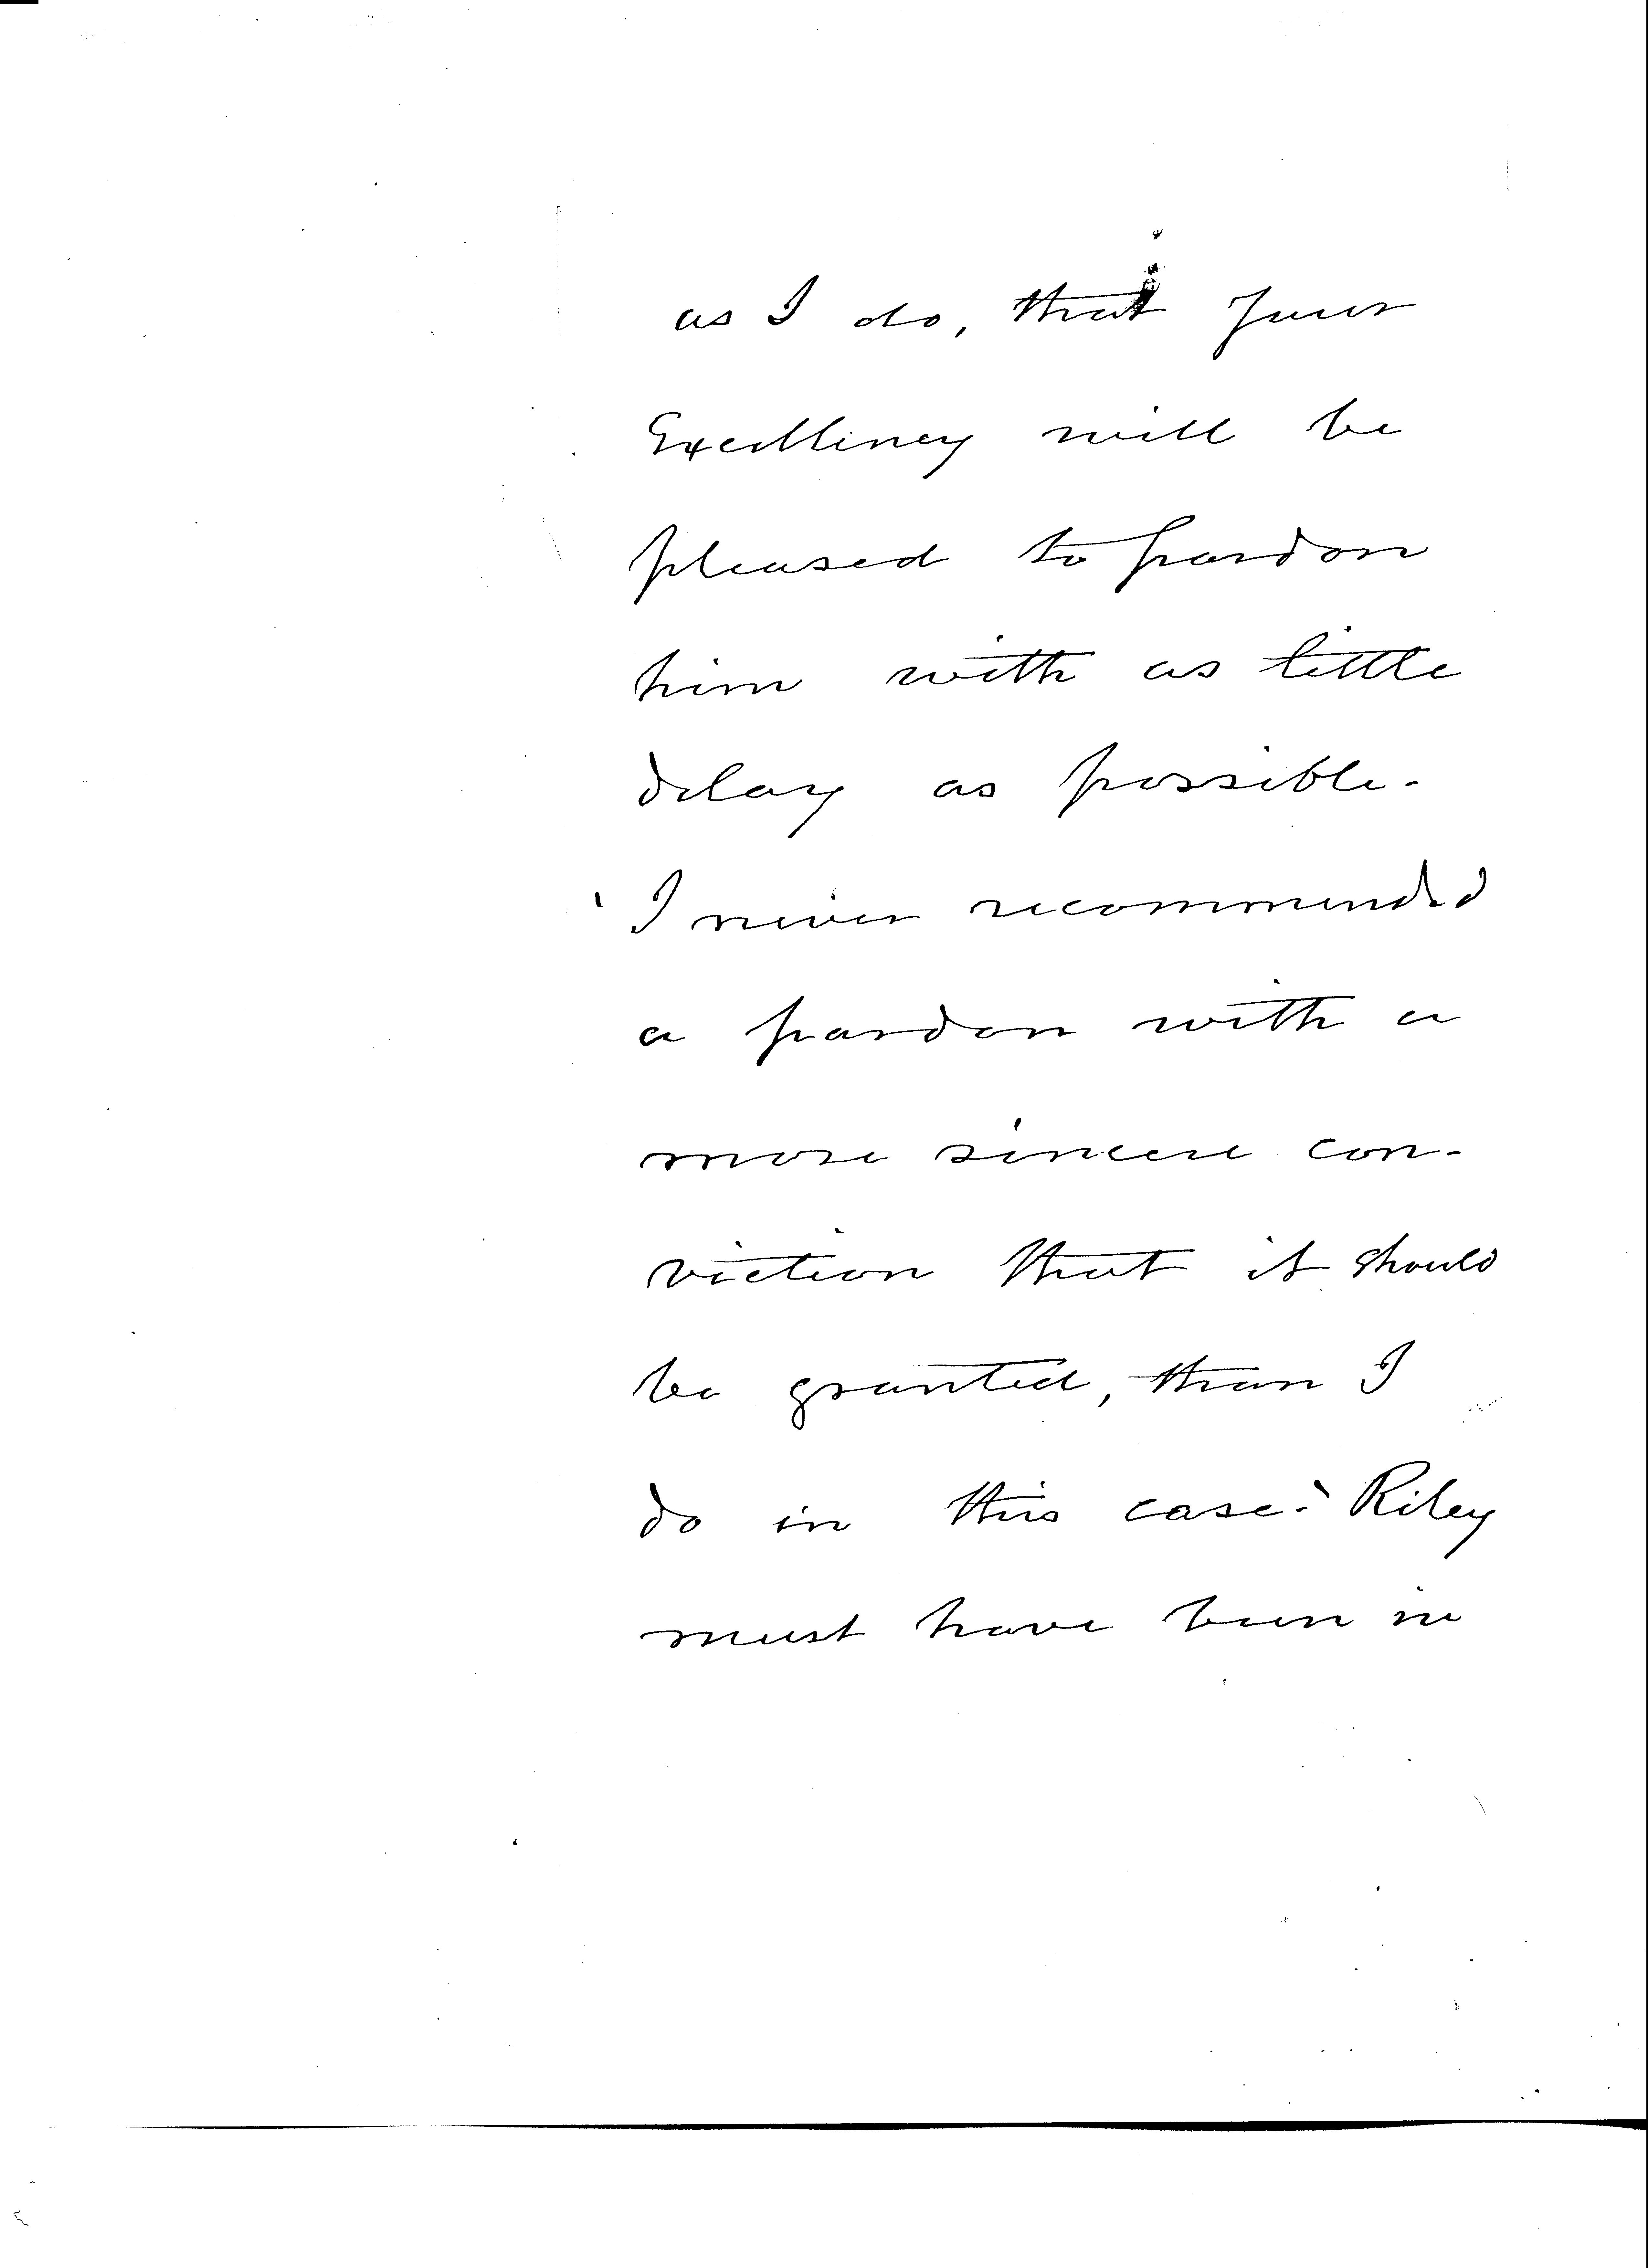 as I do, that your
Excellency will be
pleased to pardon
him with as little
delay as possible.
' I never recommended
a pardon with a
more sincere con-
viction that it should
be granted, than I
do in this case.' Riley
must have been in